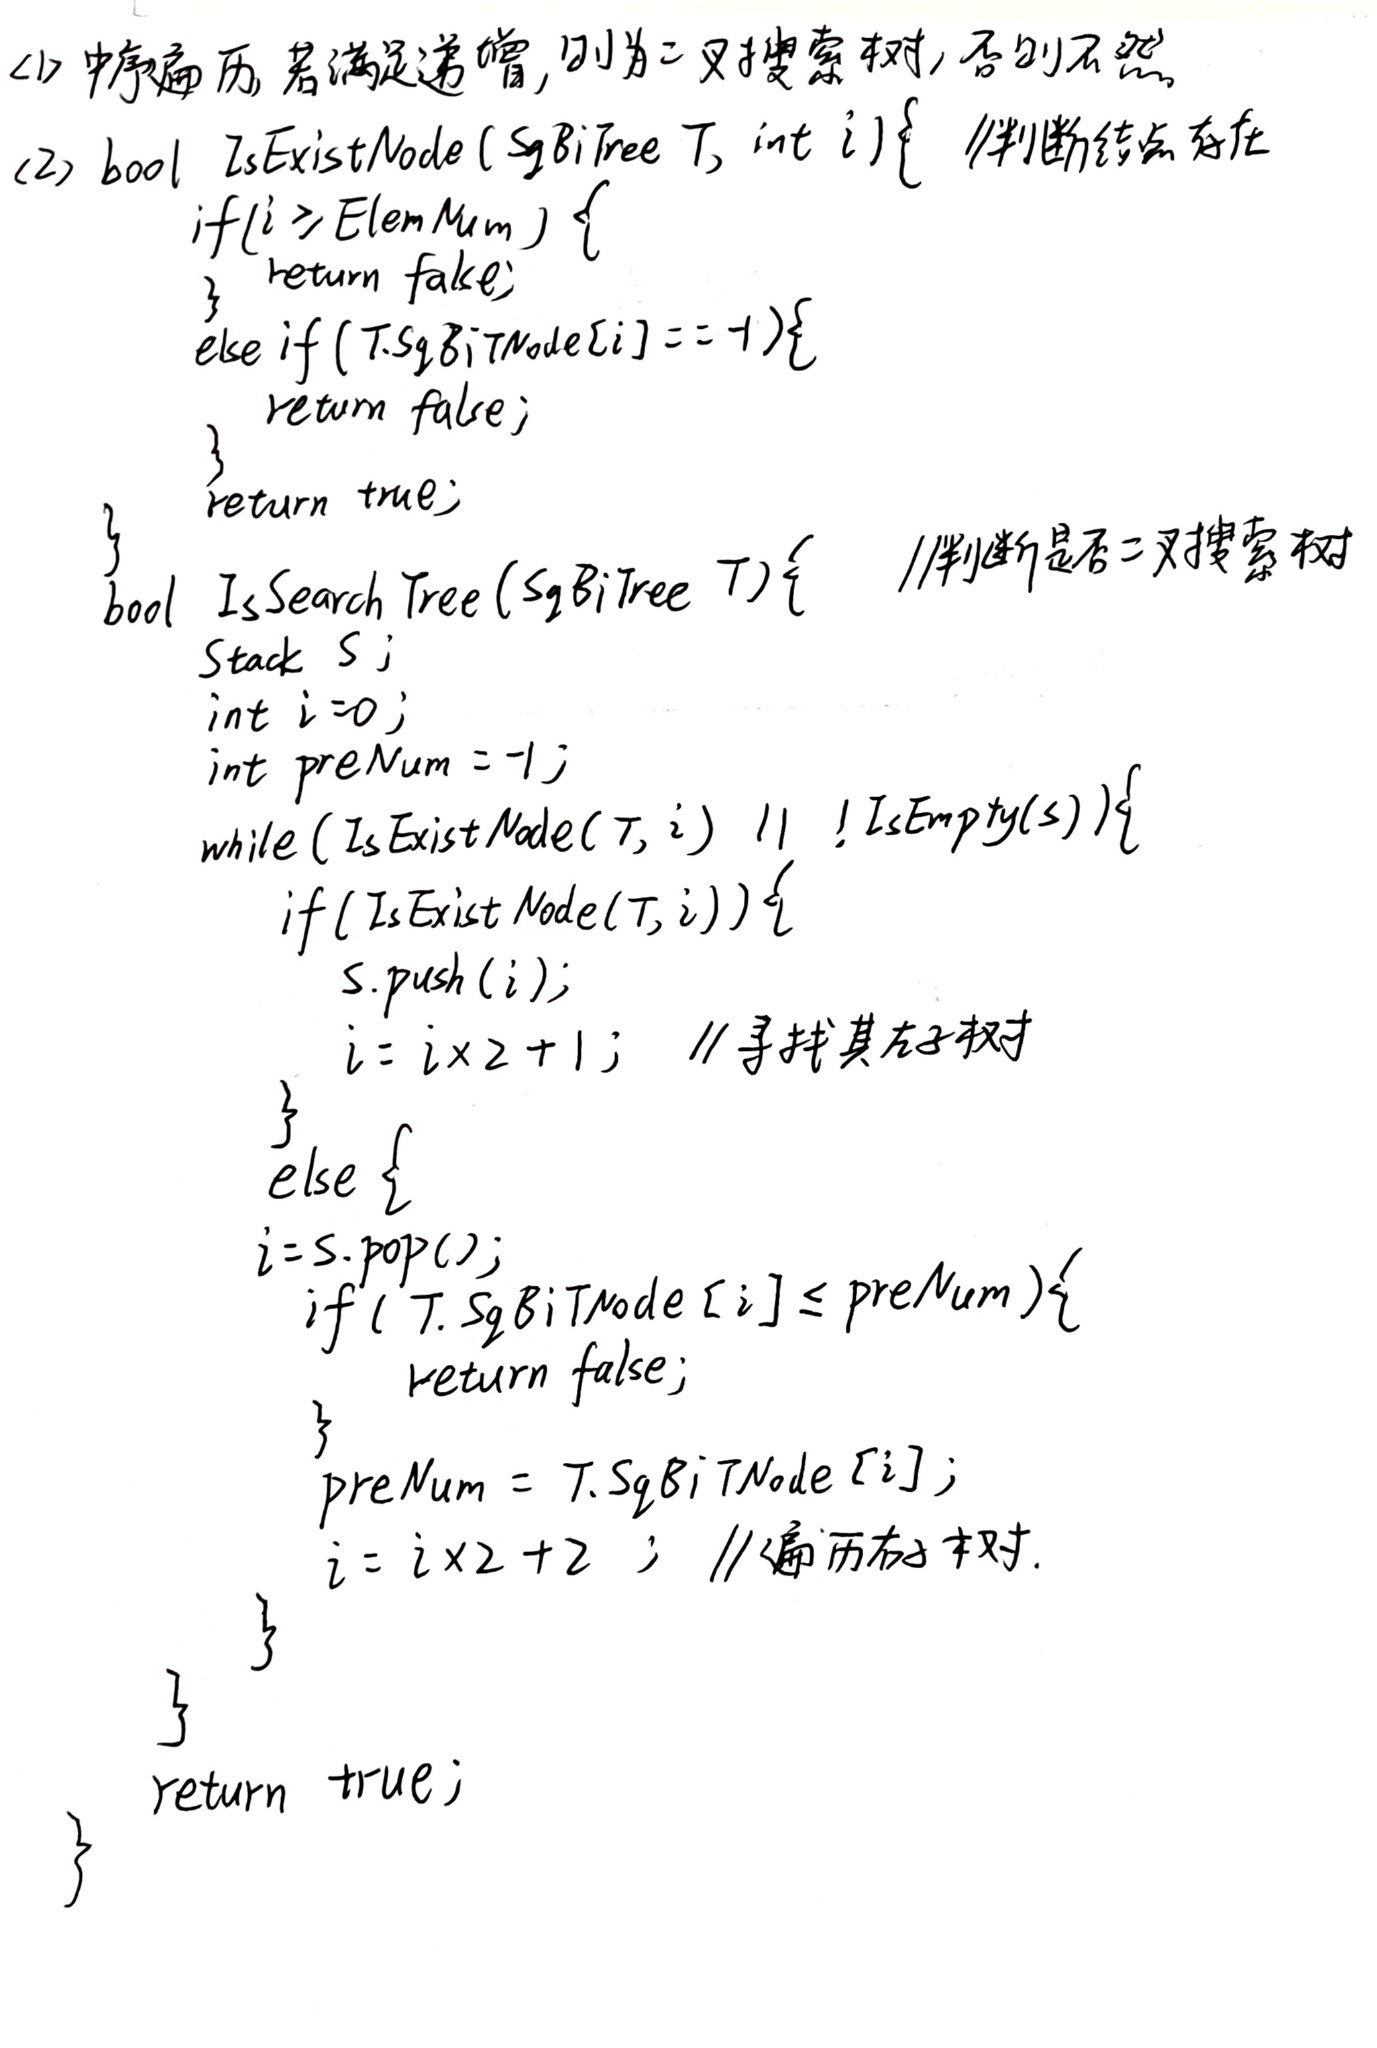 (1) 中序遍历,若满足递增,则为二叉搜索树,否则不然
(2) bool IsExistNode(SqBiTree T, int i){ //判断结点存在
if(i≥ElemNum){
return false;
}
else if(T.SqBiTNode[i]==-1){
return false;
}
return true;
}
bool IsSearchTree(SqBiTree T){ //判断是否二叉搜索树
Stack S;
int i=0;
int preNum=-1;
while(IsExistNode(T,i) || !IsEmpty(s)){
if(IsExistNode(T,i)){
S.push(i);
i=i×2+1; //寻找其左子树
}
else{
i=S.pop();
if(T.SqBiTNode[i]≤preNum){
return false;
}
preNum=T.SqBiTNode[i];
i=i×2+2; //遍历右子树.
}
}
return true;
}